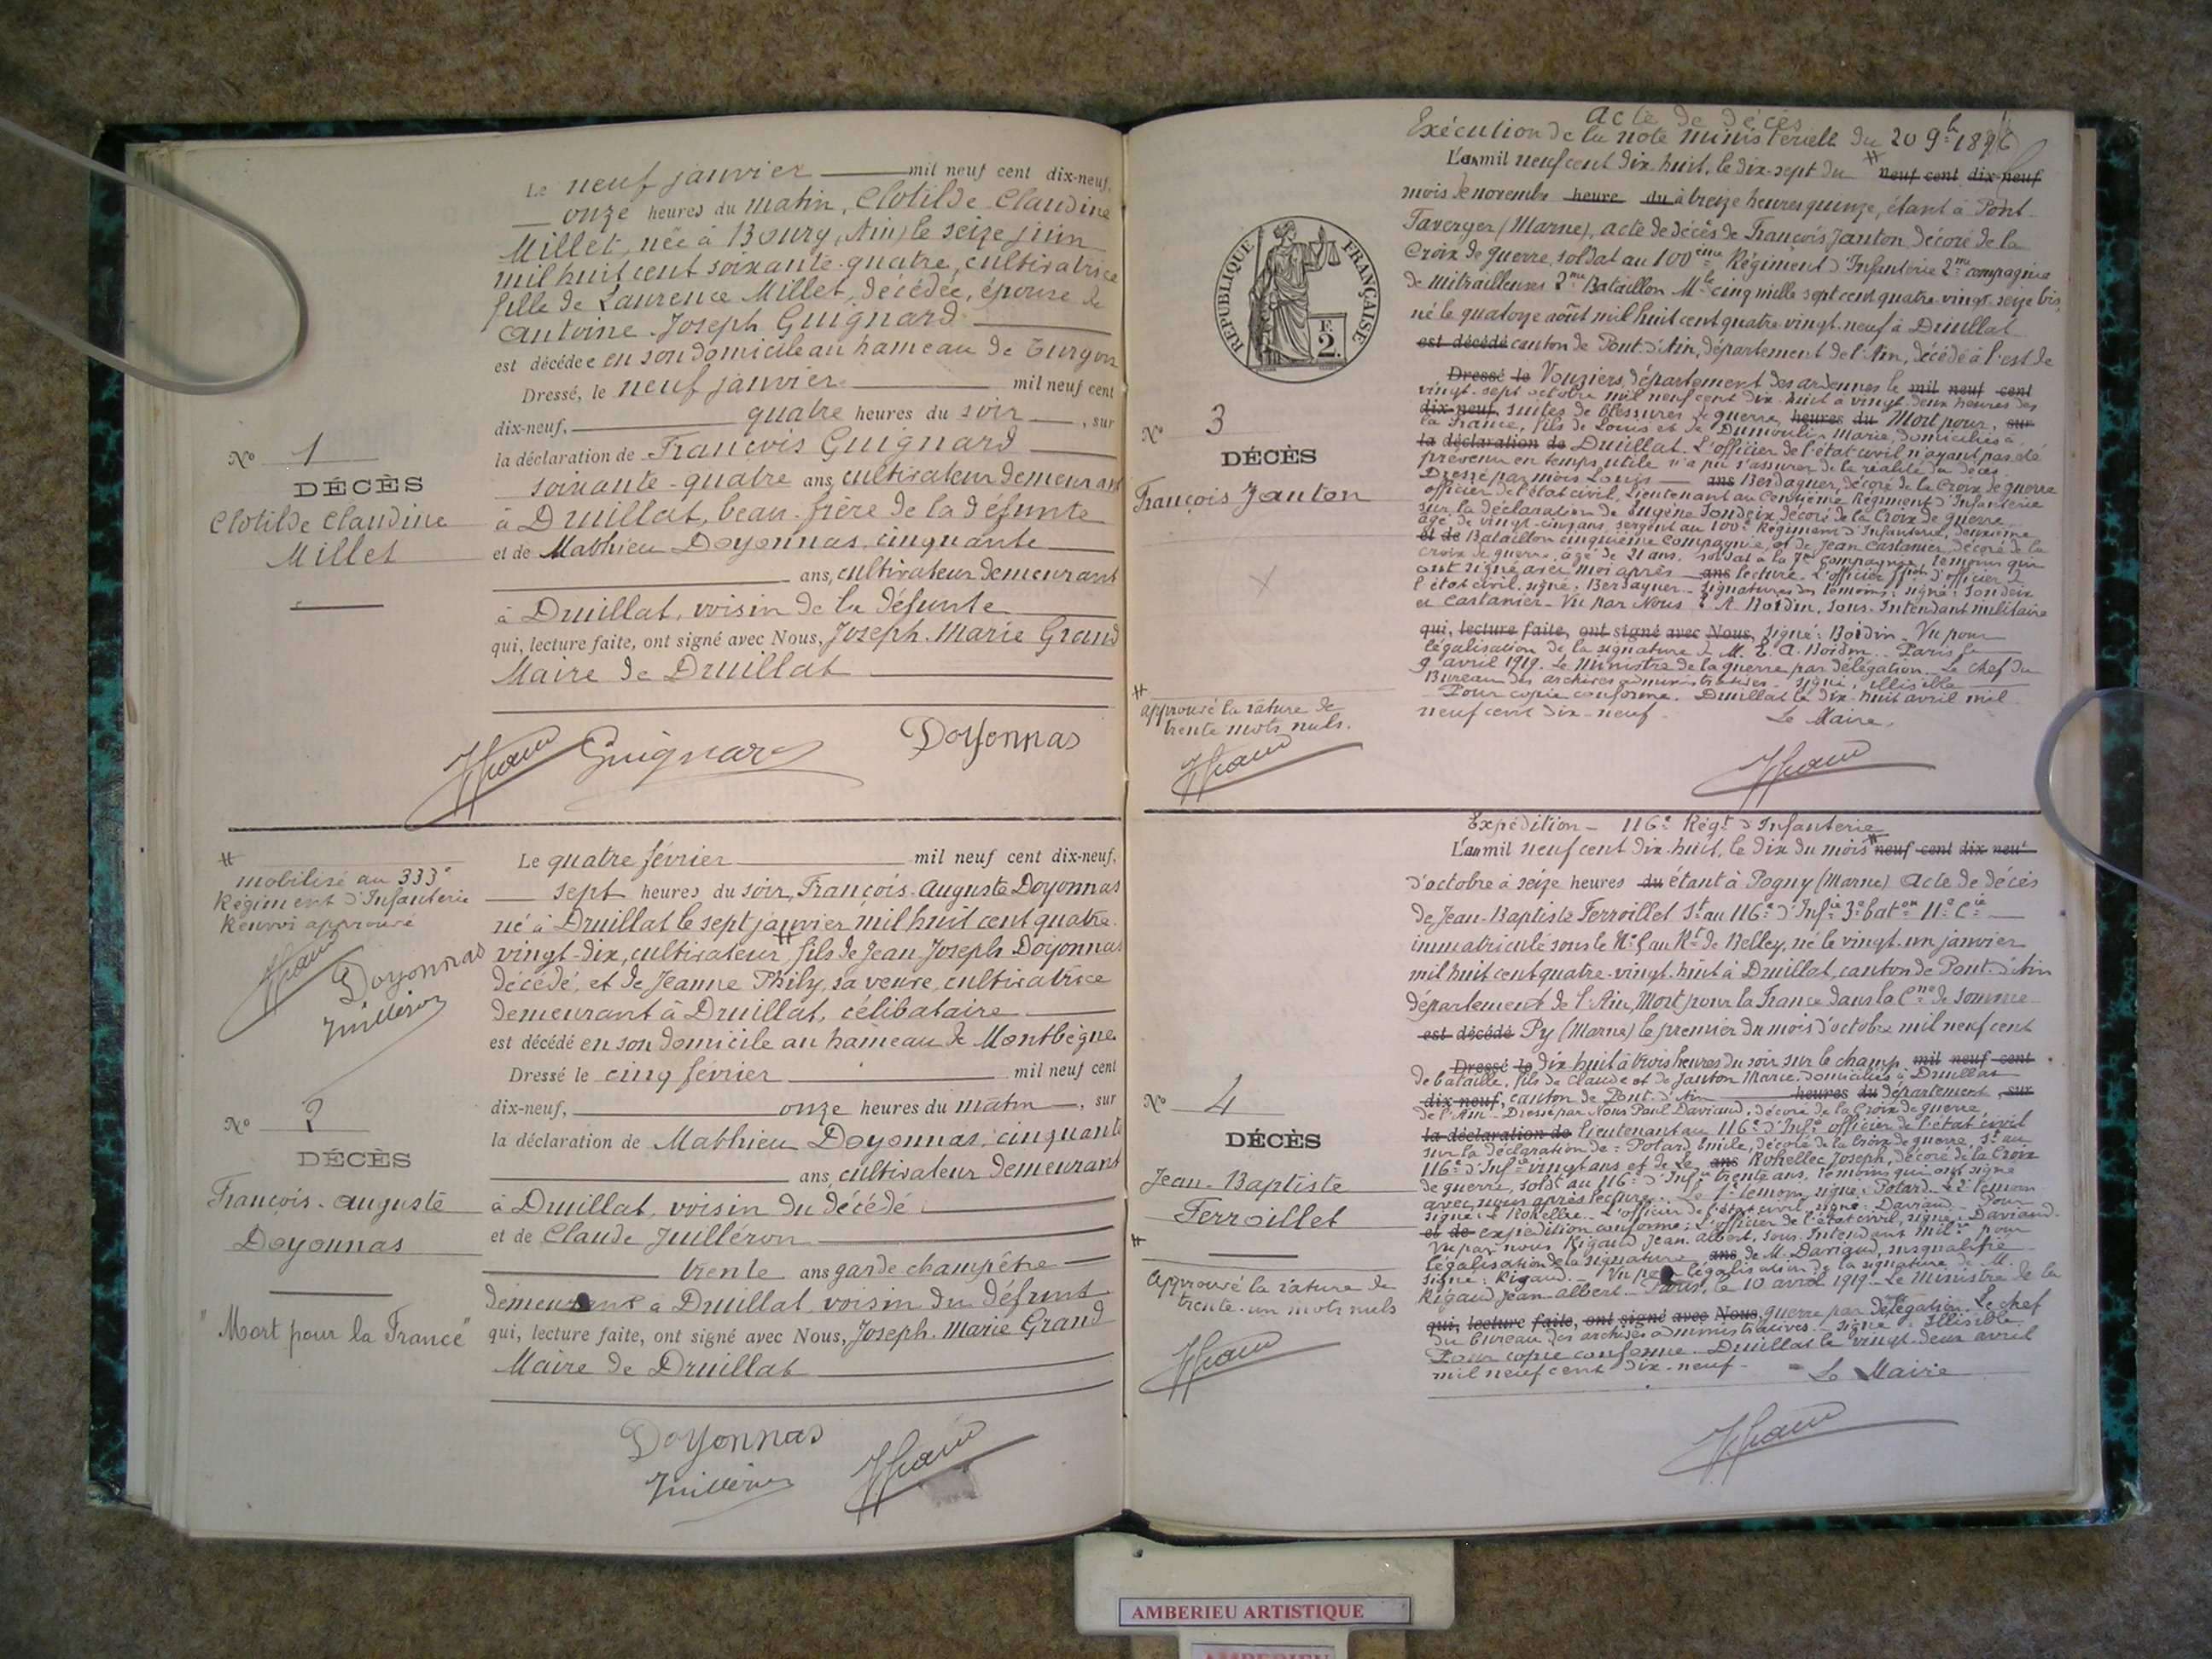 Le neuf janvier mil neuf cent dix-neuf,
onze heures du matin, Clotilde Claudine
Millet, née à Bourg (Ain) le seize juin
mil huit cent soixante-quatre, cultivatrice
fille de Laurence Millet, décédée, épouse de
Antoine-Joseph Guignard
est décédée en son domicile au hameau de Turgon
Dressé, le neuf janvier mil neuf cent
dix-neuf, quatre heures du soir, sur
la déclaration de François Guignard
soixante-quatre ans, cultivateur demeurant
à Druillat, beau-frère de la défunte
et de Mathieu Doyonnas, cinquante
ans, cultivateur demeurant
à Druillat, voisin de la défunte
qui, lecture faite, ont signé avec Nous, Joseph-Marie Grand
Maire de Druillat
Guignard
Doyonnas
No 1
DÉCÈS
Clotilde Claudine
Millet
mobilisé au 333e
Régiment d'Infanterie
Renvoi approuvé
Doyonnas
Juilléron
No 2
DÉCÈS
François-Auguste
Doyonnas
"Mort pour la France"
Le quatre février mil neuf cent dix-neuf,
sept heures du soir, François-Auguste Doyonnas
né à Druillat le sept janvier mil huit cent quatre-
vingt-dix, cultivateur # fils de Jean-Joseph Doyonnas
décédé, et de Jeanne Phily, sa veuve, cultivatrice
demeurant à Druillat, célibataire
est décédé en son domicile au hameau de Montbègne
Dressé le cinq février mil neuf cent
dix-neuf, onze heures du matin, sur
la déclaration de Mathieu Doyonnas, cinquante
ans, cultivateur demeurant
à Druillat, voisin du décédé
et de Claude Juilléron
trente ans garde champêtre
demeurant à Druillat, voisin du défunt
qui, lecture faite, ont signé avec Nous, Joseph-Marie Grand
Maire de Druillat
Doyonnas
Juilléron
RÉPUBLIQUE FRANÇAISE
2.
No 3
DÉCÈS
François Janton
#
approuvé la rature de
trente mots nuls.
Acte de décès
Exécution de la note ministérielle du 20 9bre 1896
L'an mil neuf cent dix-huit, le dix-sept du # neuf cent dix-neuf
mois de novembre heure du à treize heures quinze, étant à Pont
Faverger (Marne), acte de décès de François Janton décoré de la
Croix de guerre, soldat au 100ème Régiment d'Infanterie 2me compagnie
de Mitrailleuses 2me Bataillon Mle cinq mille sept cent quatre-vingt-seize bis,
né le quatorze août mil huit cent quatre-vingt-neuf à Druillat
est décédé canton de Pont-d'Ain, département de l'Ain, décédé à l'est de
Dressé le Vouziers, département des Ardennes le mil neuf cent
vingt-sept octobre mil neuf cent dix-huit à vingt-deux heures des
dix-neuf, suites de blessures de guerre heures du Mort pour, sur
la France, fils de Louis et de Dumoulin Marie, domiciliés à
la déclaration de Druillat. L'officier de l'état civil n'ayant pas été
prévenu en temps utile n'a pu s'assurer de la réalité du décès.
Dressé par mois Louis ans Berdaguer, décoré de la Croix de guerre
officier de l'état civil, Lieutenant au Centième Régiment d'Infanterie
sur la déclaration de Eugène Sondeix décoré de la Croix de guerre
âgé de vingt-cinq ans, sergent au 100e Régiment d'Infanterie, deuxième
et de Bataillon cinquième Compagnie, et de Jean Castanier, décoré de la
croix de guerre, âgé de 21 ans, soldat à la 7me Compagnie, témoins qui
ont signé avec moi après ans lecture. L'officier d'officier d
l'état civil, signé: Berdaguer. Signatures des témoins: signé: Sondeix
et Castanier. Vu par Nous A. Boidin, Sous-Intendant militaire
qui, lecture faite, ont signé avec Nous, signé: Boidin. Vu pour
légalisation de la signature de M. E. A. Boidin. Paris le
9 avril 1919. Le Ministre de la guerre par délégation. Le chef du
Bureau des archives administratives. signé: illisible
Pour copie conforme. Druillat le dix-huit avril mil
neuf cent dix-neuf.
Le Maire,
No 4
DÉCÈS
Jean-Baptiste
Ferroillet
#
Approuvé la rature de
trente-un mots nuls
Expédition - 116e Régt d'Infanterie
L'an mil neuf cent dix-huit, le dix du mois # neuf cent dix-neuf
d'octobre à seize heures du étant à Pogny (Marne) Acte de décès
de Jean-Baptiste Ferroillet St au 116e d'Infie 3e baton 11e Cie
immatriculé sous le No 5 au Rt de Belley, né le vingt-un janvier
mil huit cent quatre-vingt-huit à Druillat, canton de Pont-d'Ain
département de l'Ain, Mort pour la France dans la Cne de Somme
est décédé Py (Marne) le premier du mois d'octobre mil neuf cent
Dressé le dix huit à trois heures du soir sur le champ mil neuf cent
de bataille, fils de Claude et de Janton Marie, domiciliés à Druillat
dix-neuf, canton de Pont-d'Ain heures du département, sur
de l'Ain. Dressé par Nous Paul Daviaud, décoré de la Croix de guerre,
la déclaration de lieutenant au 116e d'Infie officier de l'état civil
sur la déclaration de: Potard Emile, décoré de la Croix de guerre, St au
116e d'Infie vingt ans et de Le ans Rohellec Joseph, décoré de la Croix
de guerre, soldt au 116e d'Infie trente ans, témoins qui ont signé
avec nous après lecture. Le 1er témoin signé: Potard. Le 2e témoin
signé: Le Rohellec. L'officier de l'état civil, signé: Daviaud. Pour
et de expédition conforme: L'officier de l'état civil, signé: Daviaud.
Vu par nous Rigaud Jean-Albert, Sous-Intendant Milre pour
légalisation de la signature ans de M. Daviaud, susqualifié
signé: Rigaud. Vu pour légalisation de la signature de M.
Rigaud Jean-Albert. Paris, le 10 avril 1919. Le Ministre de la
qui, lecture faite, ont signé avec Nous, guerre par délégation. Le chef
du bureau des archives administratives. signé: Illisible.
Pour copie conforme. Druillat le vingt-deux avril
mil neuf cent dix-neuf.
Le Maire
AMBERIEU ARTISTIQUE
AMBERIEU